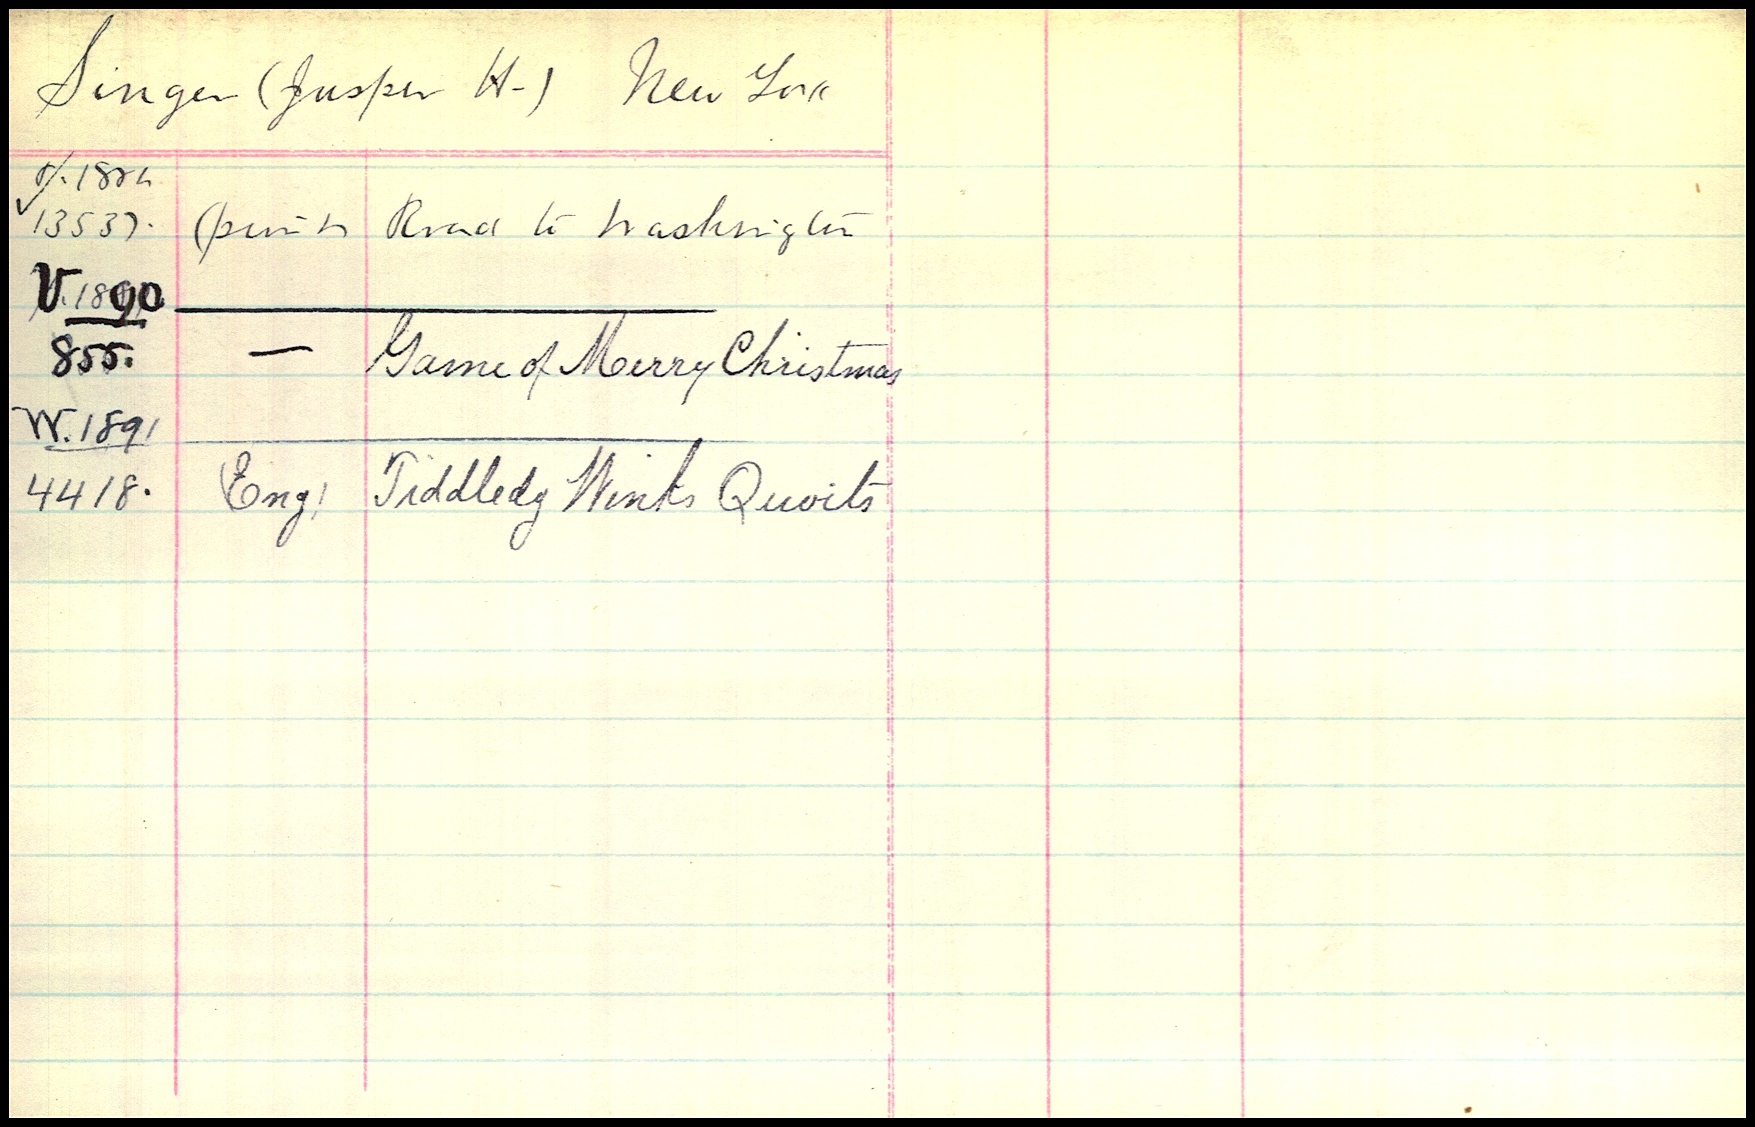 Singer (Jasper H-) New York
1884
13537. (print) Road to Washington
V.1890
855. — Game of Merry Christmas
W.1891
4418. Eng! Tiddledy Winks Quoits